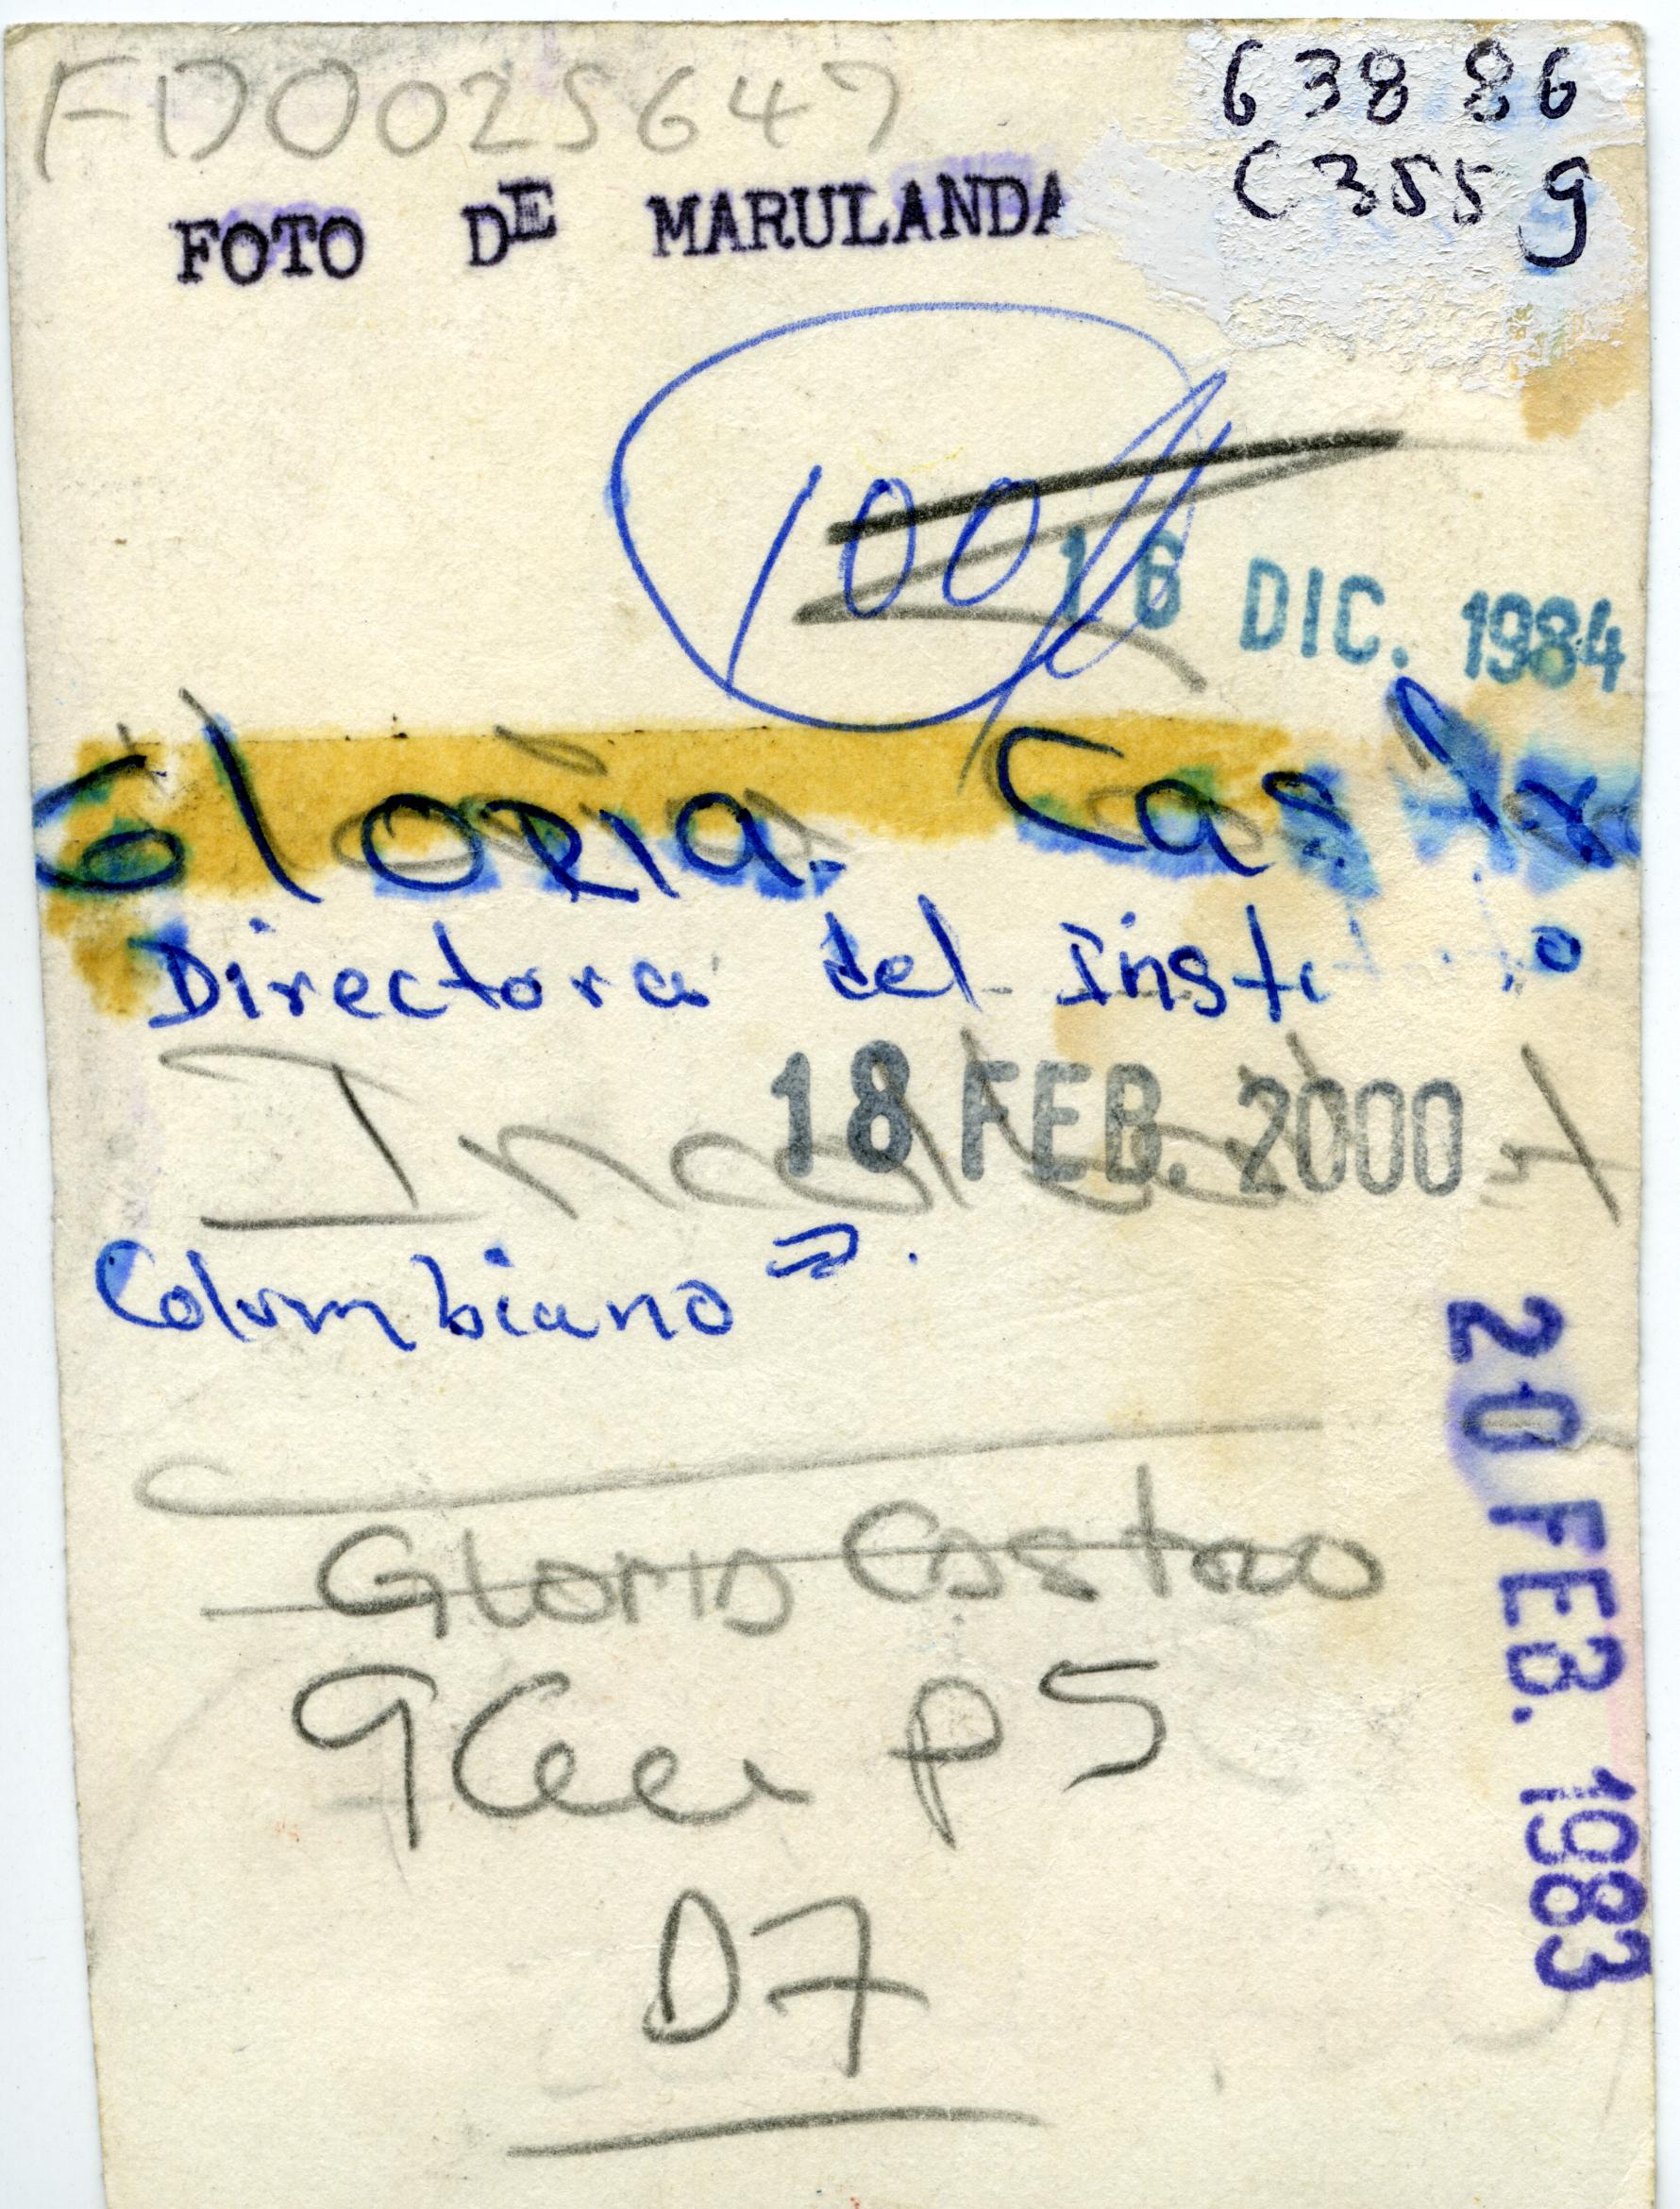 FD0025647
638 86
C355g
FOTO DE MARULANDA
100
16 DIC. 1984
GLORIA. Castro
Directora del
18 FEB. 2000
Colombiano
20 FEB. 1983
Gloria Castro
p 5
D7